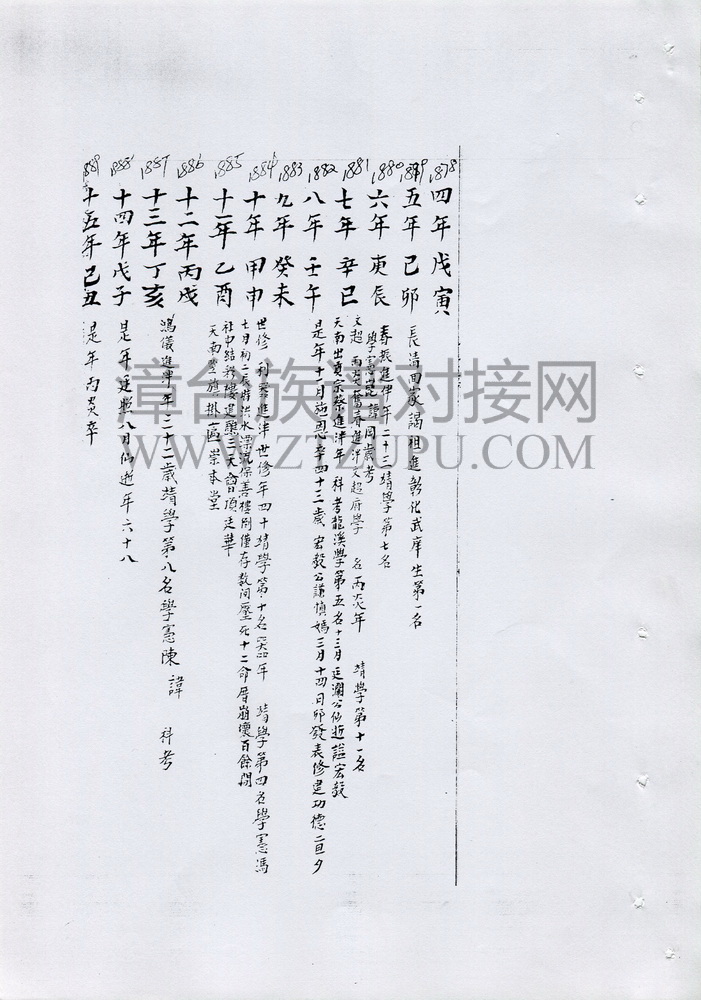 1878
四年戊寅
1879
五年己卯
長清回臺謁祖進彰化武庠生第一名
1880
六年庚辰
春振進泮年二十三靖學第七名
學憲 諱 岡歲考
1881
七年辛巳
文超 丙炎 奮春進泮文超府學 名丙炎年 靖學第十一名
天南出貢宗蔡進泮年 科考龍溪學第五名十三月廷瀾公仙逝諡宏毅
1882
八年壬午
是年十一月施恩卒四十二歲 宏毅公謙慎媽三月十四日卯發表修建功德二旦夕
1883
九年癸未
1884
十年甲申
世修 利器進泮世修年四十靖學第十名 年 靖學第四名學憲馮
七月初二辰時洪水漂流保善樓剛僅存數间壓死十二命厝崩懷百餘間
1885
十一年乙酉
社中結彩樓進藥三天 頂廷華
天南豎旗掛匾崇本堂
1886
十二年丙戌
1887
十三年丁亥
鴻儀進泮年二十二歲靖學第八名學憲陳 諱 科考
1888
十四年戊子
是年廷照八月仙逝年六十八
1889
十五年己丑
是年丙炎卒
漳台族谱对接网
WWW.ZTZUPU.COM